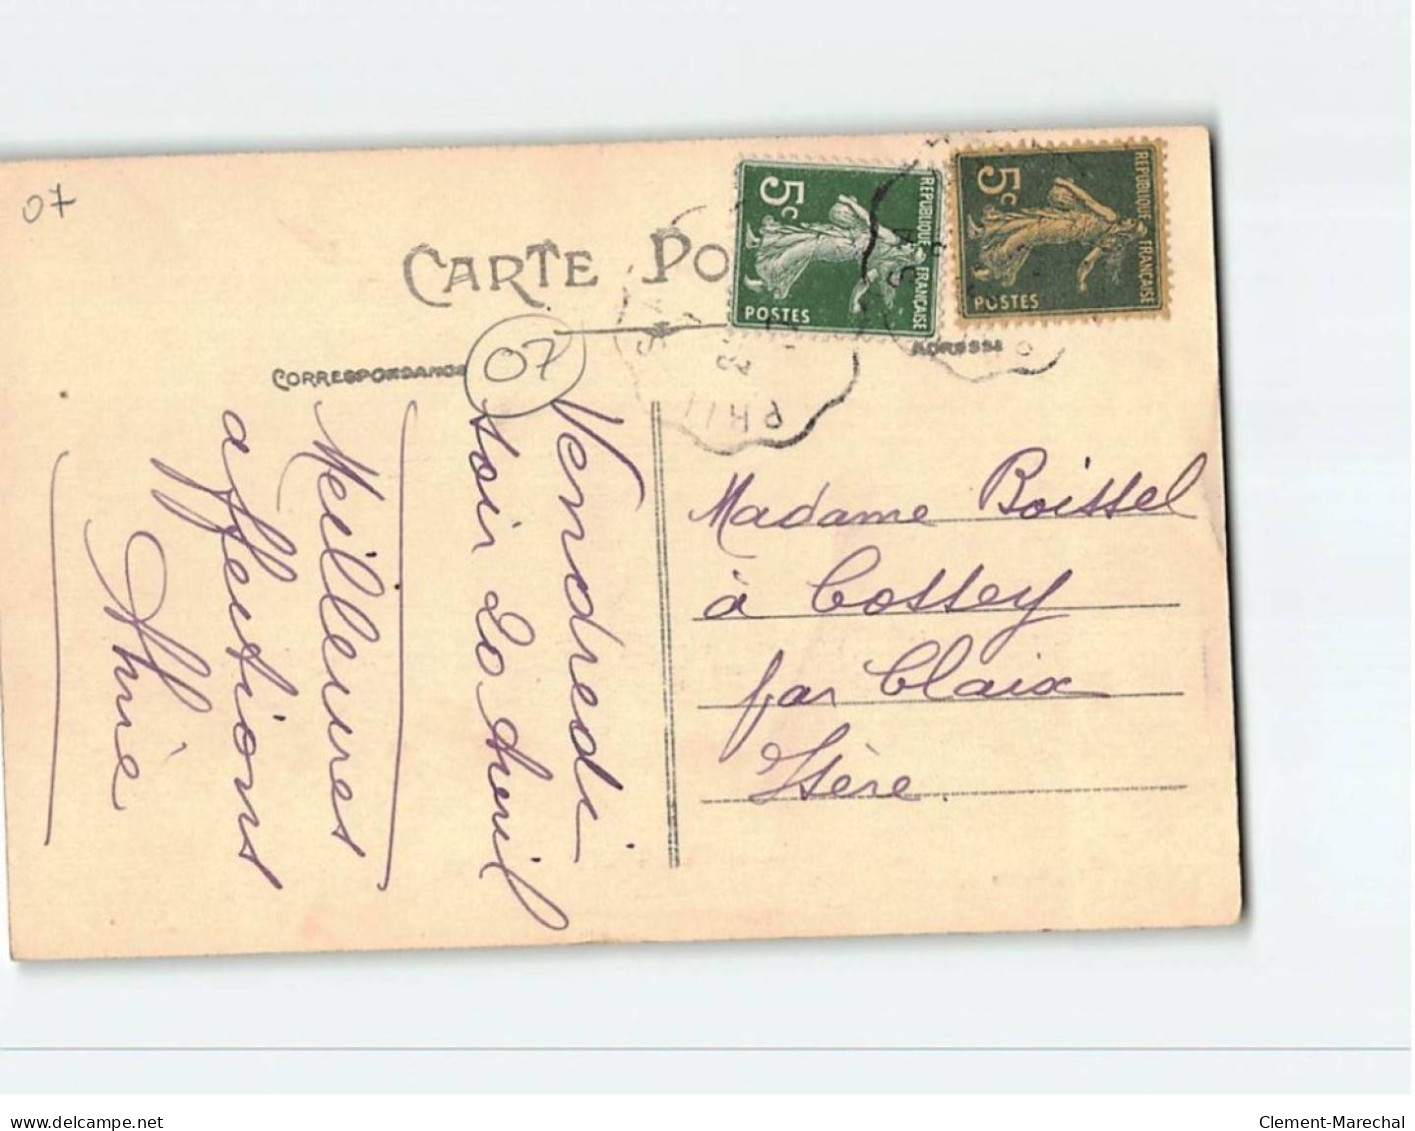 07
CARTE PO
CORRESPONDANCE
07
ADRESSE
5c
REPUBLIQUE FRANÇAISE
POSTES
5c
REPUBLIQUE FRANÇAISE
POSTES
PRI
Vendredi
soir 20 Avril
Meilleures
affections
Madame Boissel
à Cossey
par Claix
Isère.
delcampe.net
Clement-Marechal